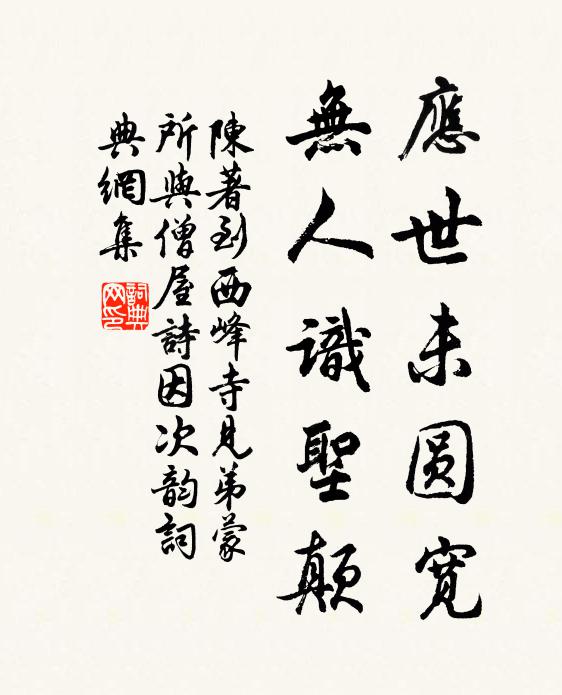 應世未圆寬
無人識聖顛
陳著到西峰寺見弟蒙
所與僧屋詩因次韵詞
典網集
詞典
网印